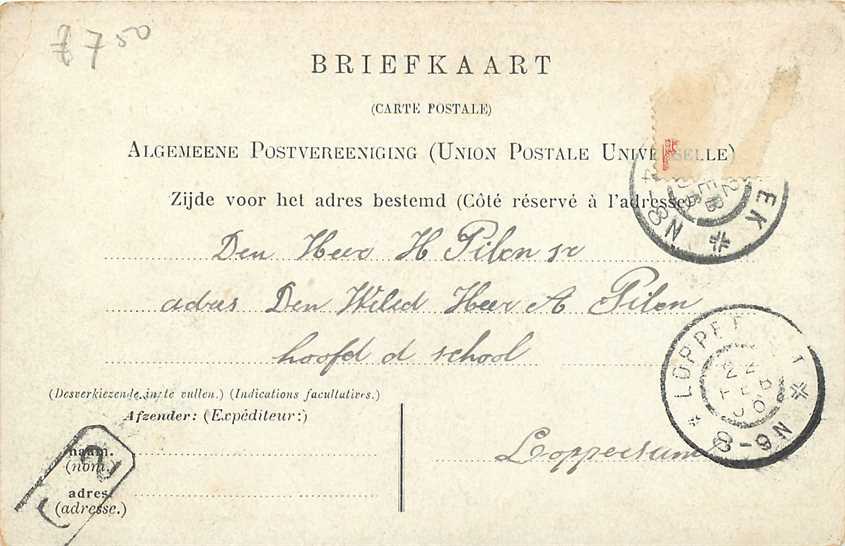 ƒ 750
BRIEFKAART
(CARTE POSTALE)
ALGEMEENE POSTVEREENIGING (UNION POSTALE UNIVERSELLE)
Zijde voor het adres bestemd (Côté réservé à l'adresse)
Den Heer H Pilon sr
adres Den Weled Heer A Pilon
hoofd d school
(Desverkiezende in te vullen.) (Indications facultatives.)
Afzender: (Expéditeur:)
Loppersum
naam.
(nom.
adres
(adresse.)
EK
8-N
LOPPE
8-9N
2